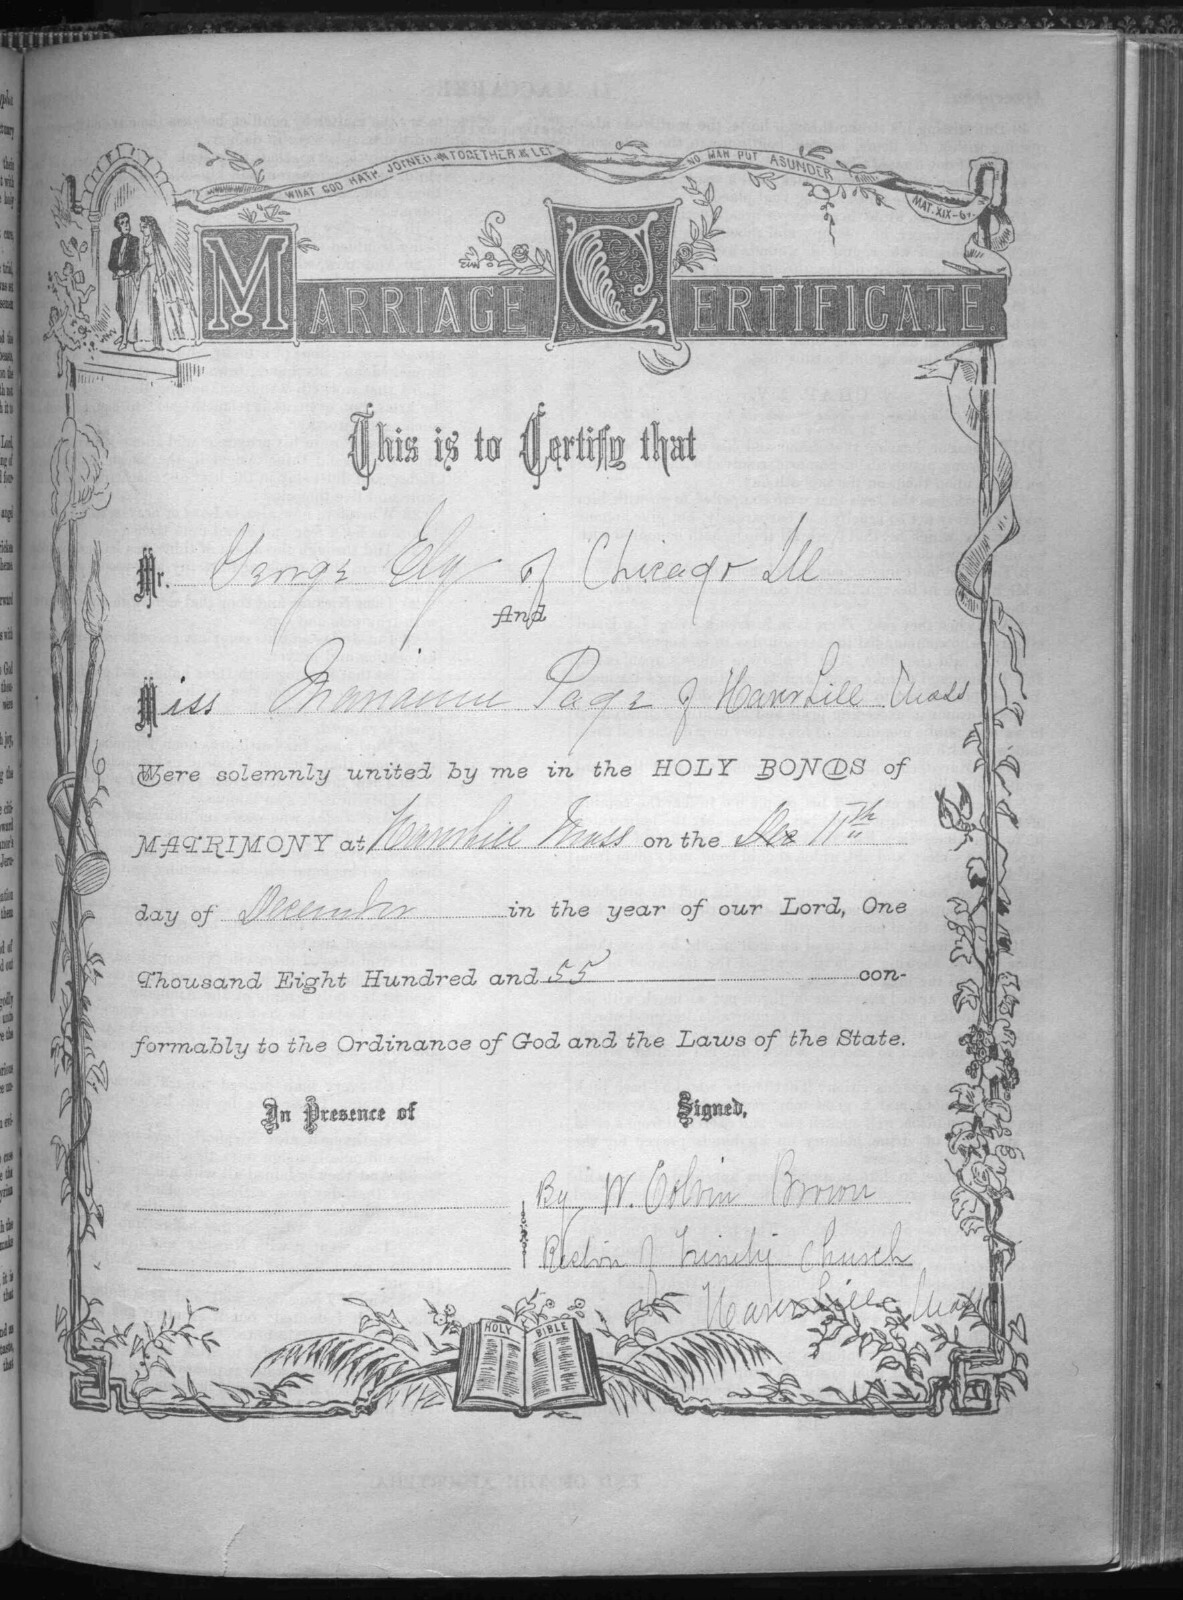 WHAT GOD HATH JOINED TOGETHER LET NO MAN PUT ASUNDER
MAT. XIX-6v.
MARRIAGE CERTIFICATE.
This is to Certify that
Mr. George Ely of Chicago Ill
And
Miss Marianne Page of Haverhill Mass
Were solemnly united by me in the HOLY BONDS of
MATRIMONY at Haverhill Mass on the Dec 11th
day of December in the year of our Lord, One
Thousand Eight Hundred and 55 con-
formably to the Ordinance of God and the Laws of the State.
In Presence of
Signed,
By W. Colvin Brown
Rector of Trinity Church
Haverhill Mass
HOLY BIBLE